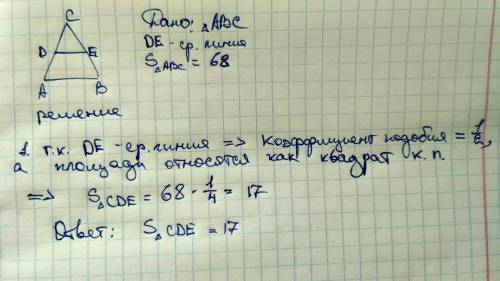 C
Дано: △ABC
D E
DE - ср. линия
S△ABC = 68
A B
решение
1. т.к. DE - ср. линия => коэффициент подобия = 1/2,
а площади относятся как квадрат к.п.
=> S△CDE = 68 · 1/4 = 17
Ответ: S△CDE = 17